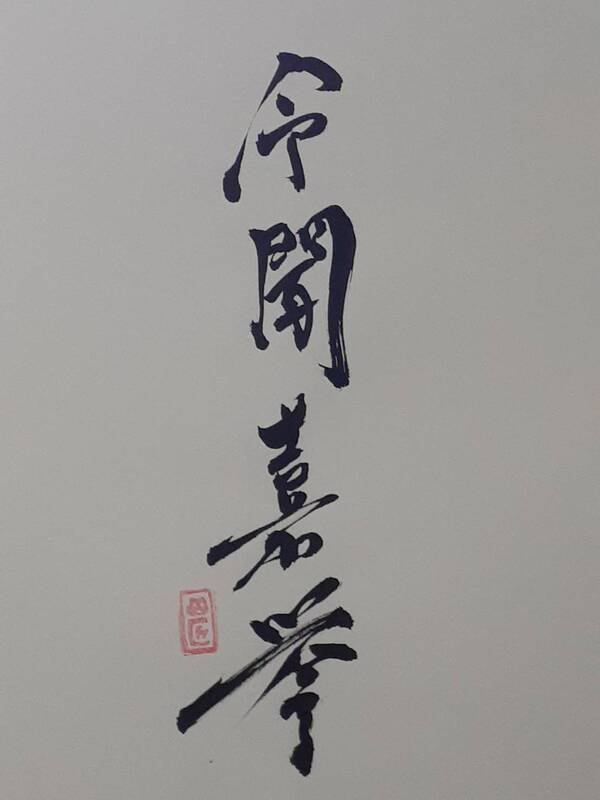 令聞嘉誉